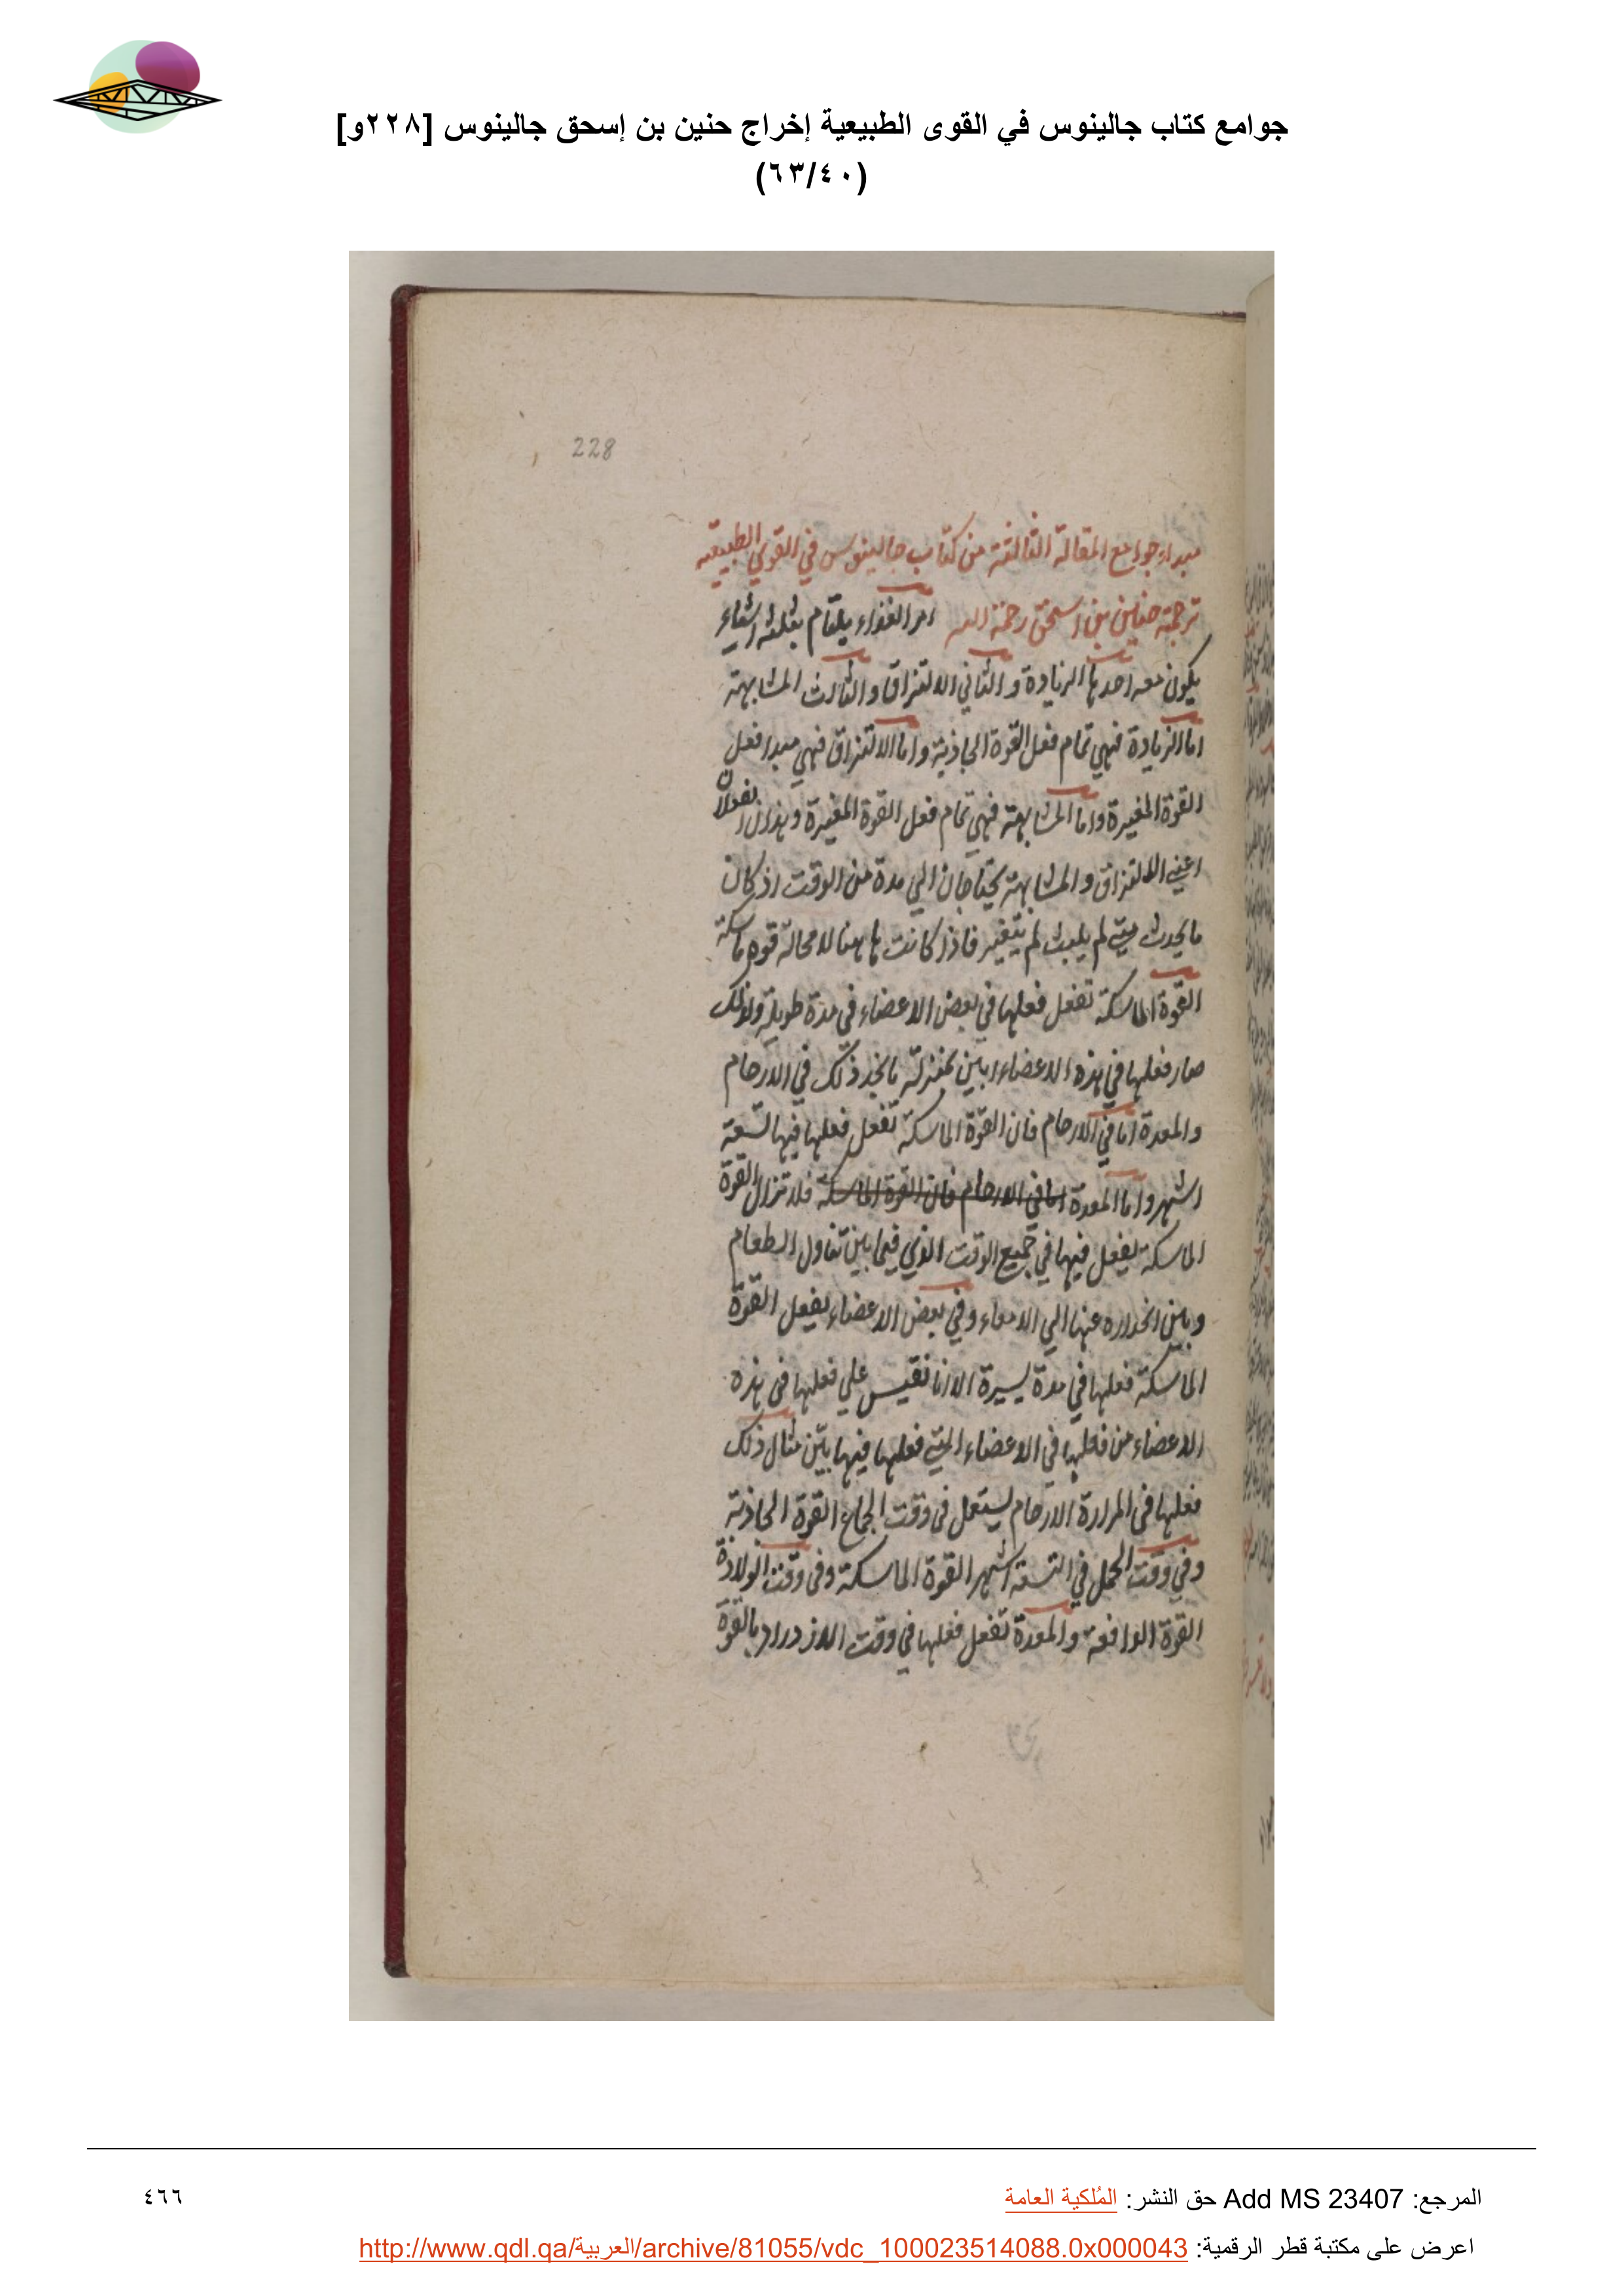 جوامع كتاب جالينوس في القوى الطبيعية إخراج حنين بن إسحق جالينوس [٢٢٨و]
(٦٣/٤٠)
228
مبداء جوامع المقالة الثالثة من كتاب جالينوس في القوي الطبيعية
ترجمة حنين بن اسحق رحمة الله امر الغذاء يلتام بثلثة اشياء
يكون معه احدها الزيادة والثاني الالتزاق والثالث المشابهة
اما الزيادة فهي تمام فعل القوة الجاذبة واما الالتزاق فهي مبدا فعل
القوة المغيرة واما المشابهة فهي تمام فعل القوة المغيرة وهذان الفعلان
اعني الالتزاق والمشابهة يحتاجان الي مدة من الوقت اذ كان
ما يحدث متي لم يلبث لم يتغير فاذا كانت هاهنا لا محالة قوه ماسكة
القوة الماسكة تفعل فعلها في بعض الاعضاء في مدة طويلة ولذلك
صار فعلها في هذه الاعضاء ابين بمنزلة ما نجد ذلك في الارحام
والمعدة اما في الارحام فان القوة الماسكة تفعل فعلها فيها لتسعة
اشهر واما المعدة اما في الارحام فان القوة الماسكة فلا تزال القوة
الماسكة يفعل فيها في جميع الوقت الذي فيما بين تناول الطعام
وبين انحداره عنها الي الامعاء وفي بعض الاعضاء يفعل القوة
الماسكة فعلها في مدة يسيرة الا انا نقيس علي فعلها في هذه
الاعضاء من فعلها في الاعضاء التي فعلها فيها بين مثال ذلك
فعلها في المرارة الارحام يستعمل في وقت الجماع القوة الجاذبة
وفي وقت الحمل في التسعة اشهر القوة الماسكة وفي وقت الولادة
القوة الدافعة والمعدة تفعل فعلها في وقت الازدراد بالقوة
المرجع: Add MS 23407 حق النشر: المُلكية العامة
٤٦٦
اعرض على مكتبة قطر الرقمية: http://www.qdl.qa/العربية/archive/81055/vdc_100023514088.0x000043